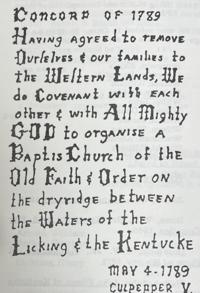 Concord of 1789
Having agreed to remove
Ourselves & our families to
the Western Lands, We
do Covenant with each
other & with All Mighty
GOD to organise a
Baptis Church of the
Old Faith & Order on
the dryridge between
the Waters of the
Licking & the Kentucke
May 4-1789
Culpepper V.